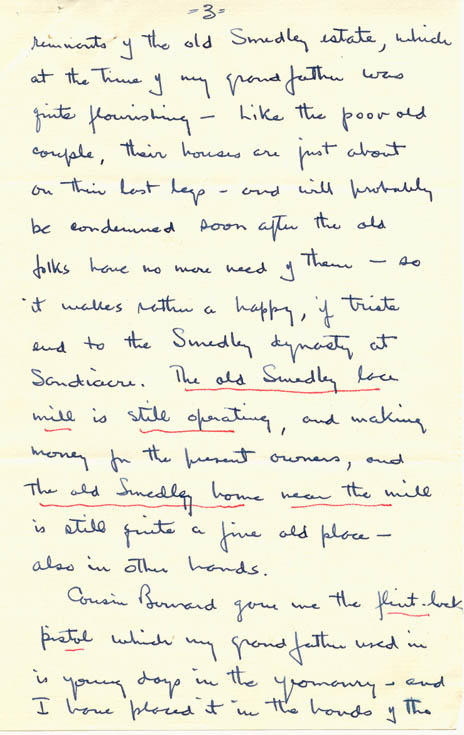 =3=
remnants of the old Smedley estate, which
at the time of my grandfather was
quite flourishing - Like the poor old
couple, their houses are just about
on their last legs - and will probably
be condemned soon after the old
folks have no more need of them - so
it makes rather a happy, if triste
end to the Smedley dynasty at
Sandiacre. The old Smedley lace
mill is still operating, and making
money for the present owners, and
the old Smedley home near the mill
is still quite a fine old place -
also in other hands.
Cousin Bernard gave me the flint-lock
pistol which my grandfather used in
is young days in the yeomanry - and
I have placed it in the hands of the